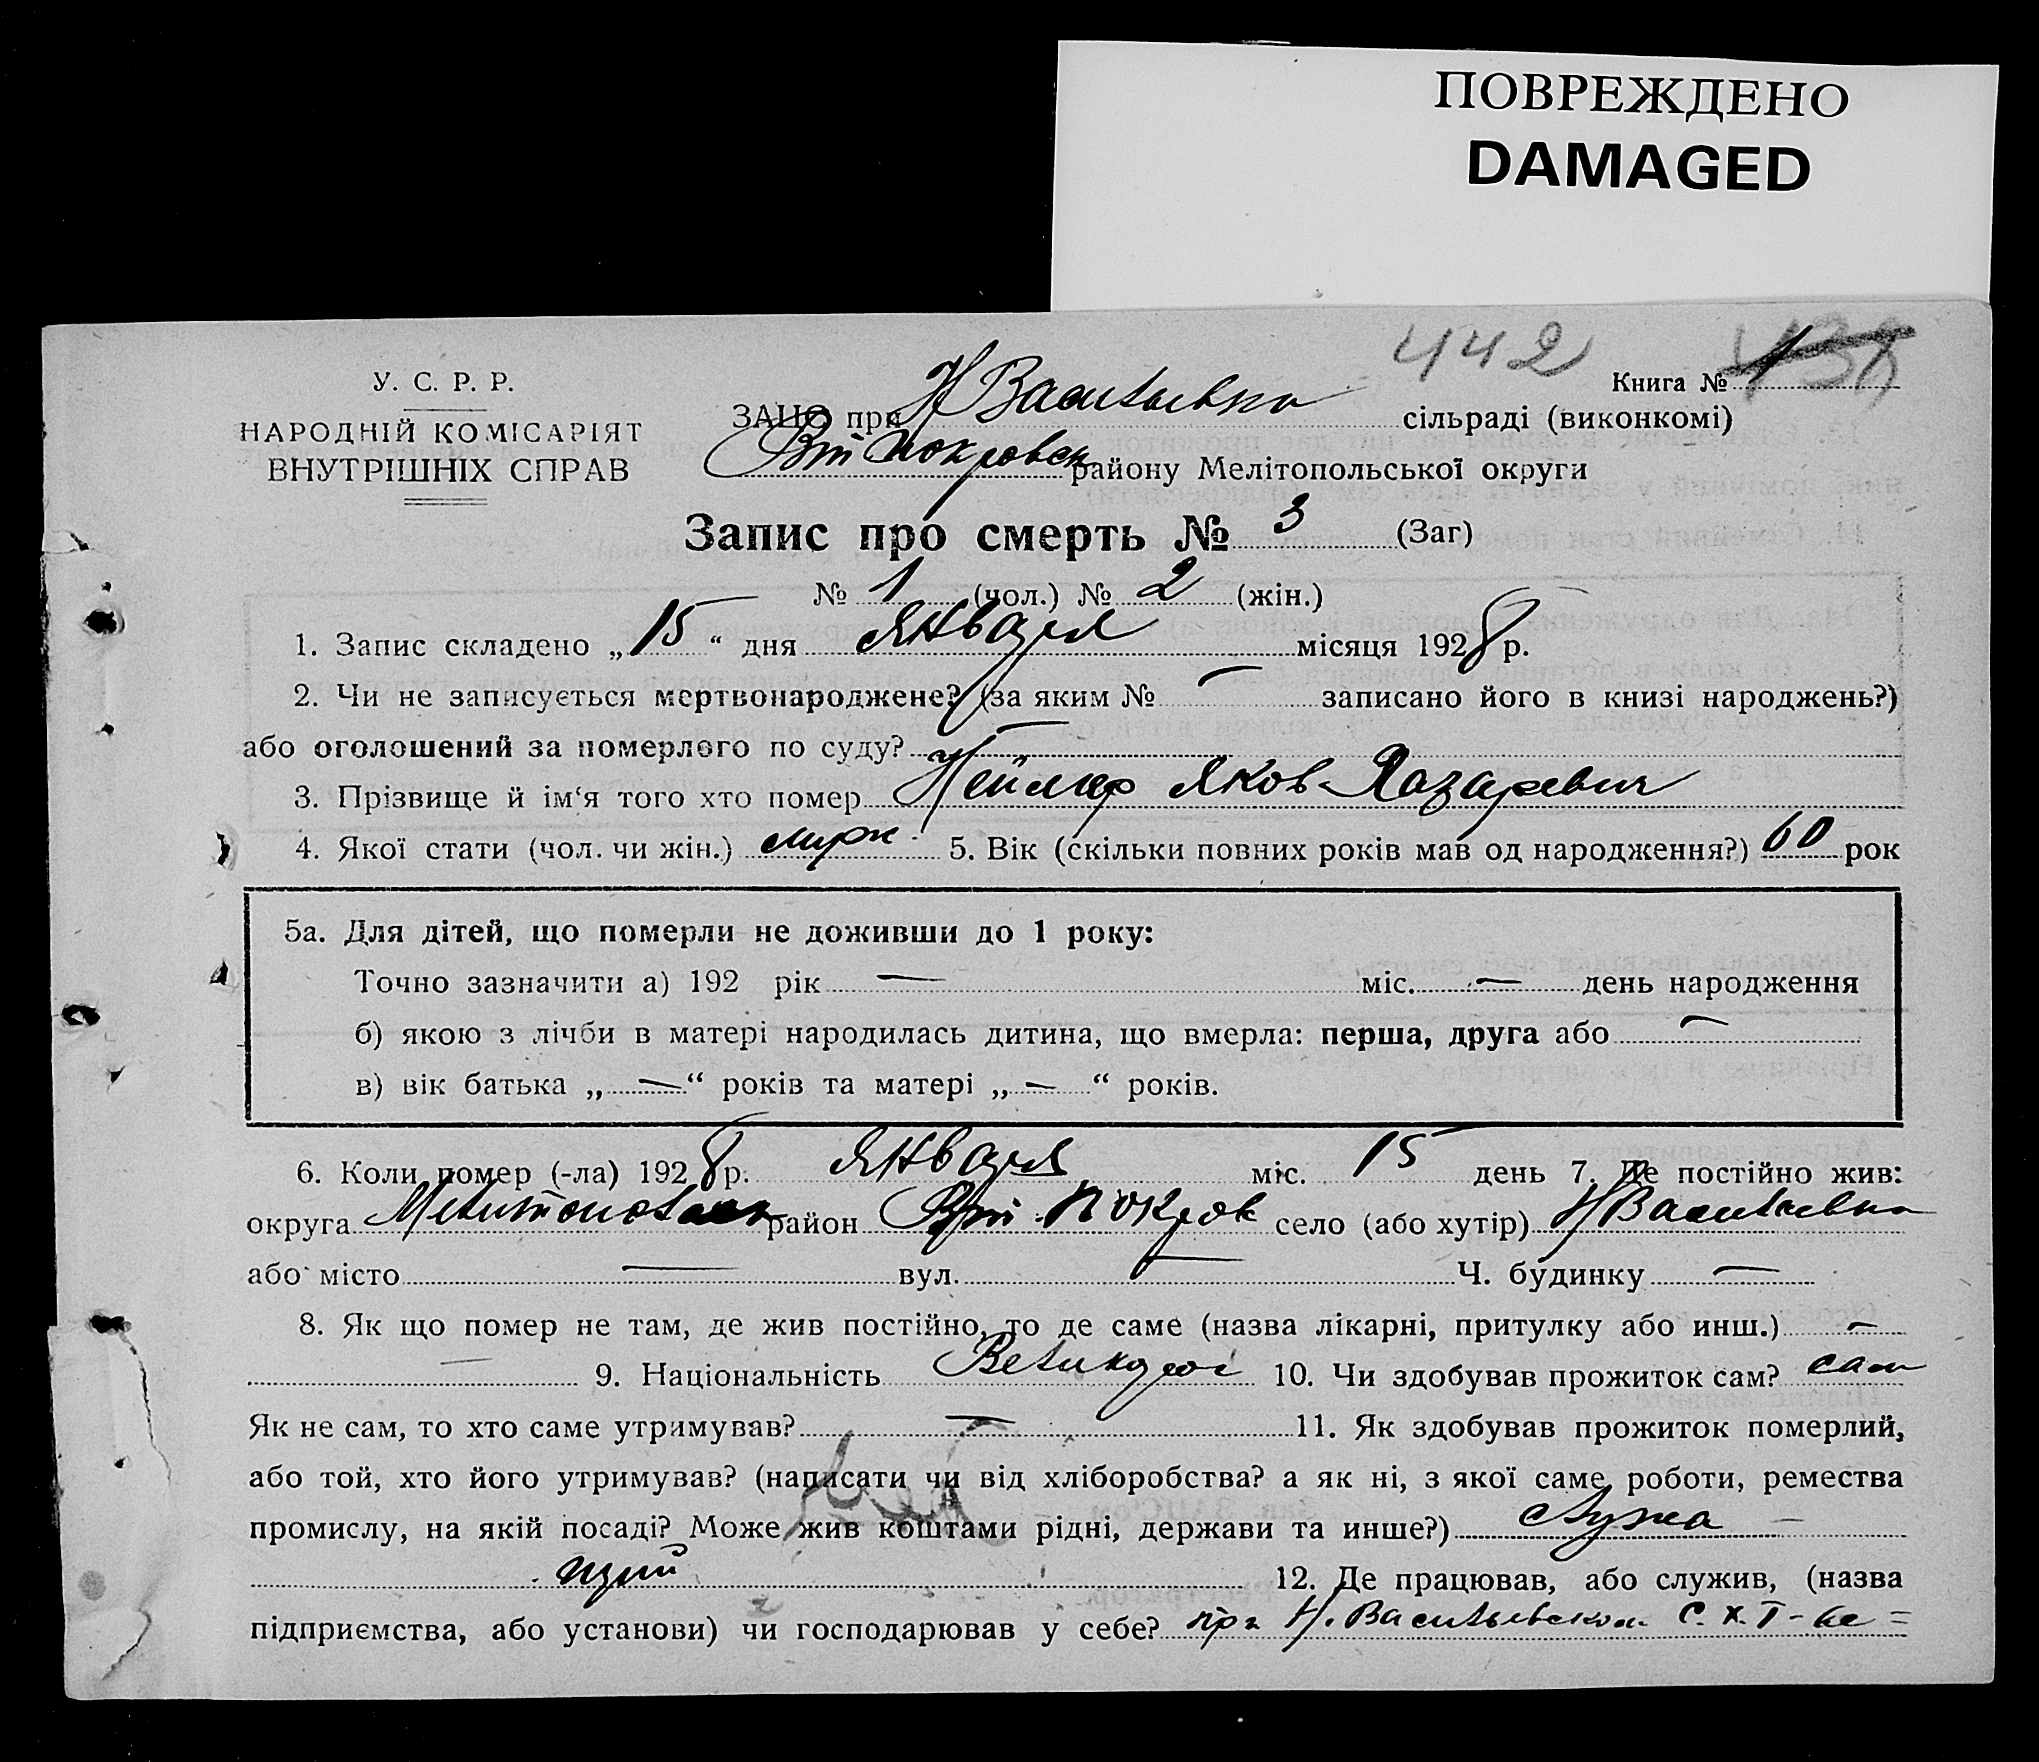 ПОВРЕЖДЕНО
DAMAGED
442
У. С. Р. Р.
Книга № 1
НАРОДНІЙ КОМІСАРІЯТ
ВНУТРІШНІХ СПРАВ
ЗАЦС при Н Васильевка сільраді (виконкомі)
Вт Покровск району Мелітопольської округи
Запис про смерть № 3 (Заг)
№ 1 (чол.) № 2 (жін.)
1. Запис складено „ 15 “ дня января місяця 1928 р.
2. Чи не записується мертвонароджене? (за яким № — записано його в книзі народжень?)
або оголошений за померлого по суду? —
3. Прізвище й ім‘я того хто помер Яков Лазаревич
4. Якої стати (чол. чи жін.) муж 5. Вік (скільки повних років мав од народження?) 60 рок
5а. Для дітей, що померли не доживши до 1 року:
Точно зазначити а) 192 рік — міс. — день народження
б) якою з лічби в матері народилась дитина, що вмерла: перша, друга або —
в) вік батька „ — “ років та матері „ — “ років.
6. Коли помер (-ла) 1928 р. января міс. 15 день 7. Де постійно жив:
округа район Вт. Покров село (або хутір) Н Васильевка
або місто — вул. — Ч. будинку —
8. Як що помер не там, де жив постійно, то де саме (назва лікарні, притулку або инш.) —
— 9. Національність Великорос 10. Чи здобував прожиток сам? сам
Як не сам, то хто саме утримував? — 11. Як здобував прожиток померлий,
або той, хто його утримував? (написати чи від хліборобства? а як ні, з якої саме роботи, ремества
промислу, на якій посаді? Може жив коштами рідні, держави та инше?) Служа
щий 12. Де працював, або служив, (назва
підприємства, або установи) чи господарював у себе? при Н. Васильевском С. Х. Т-ве =